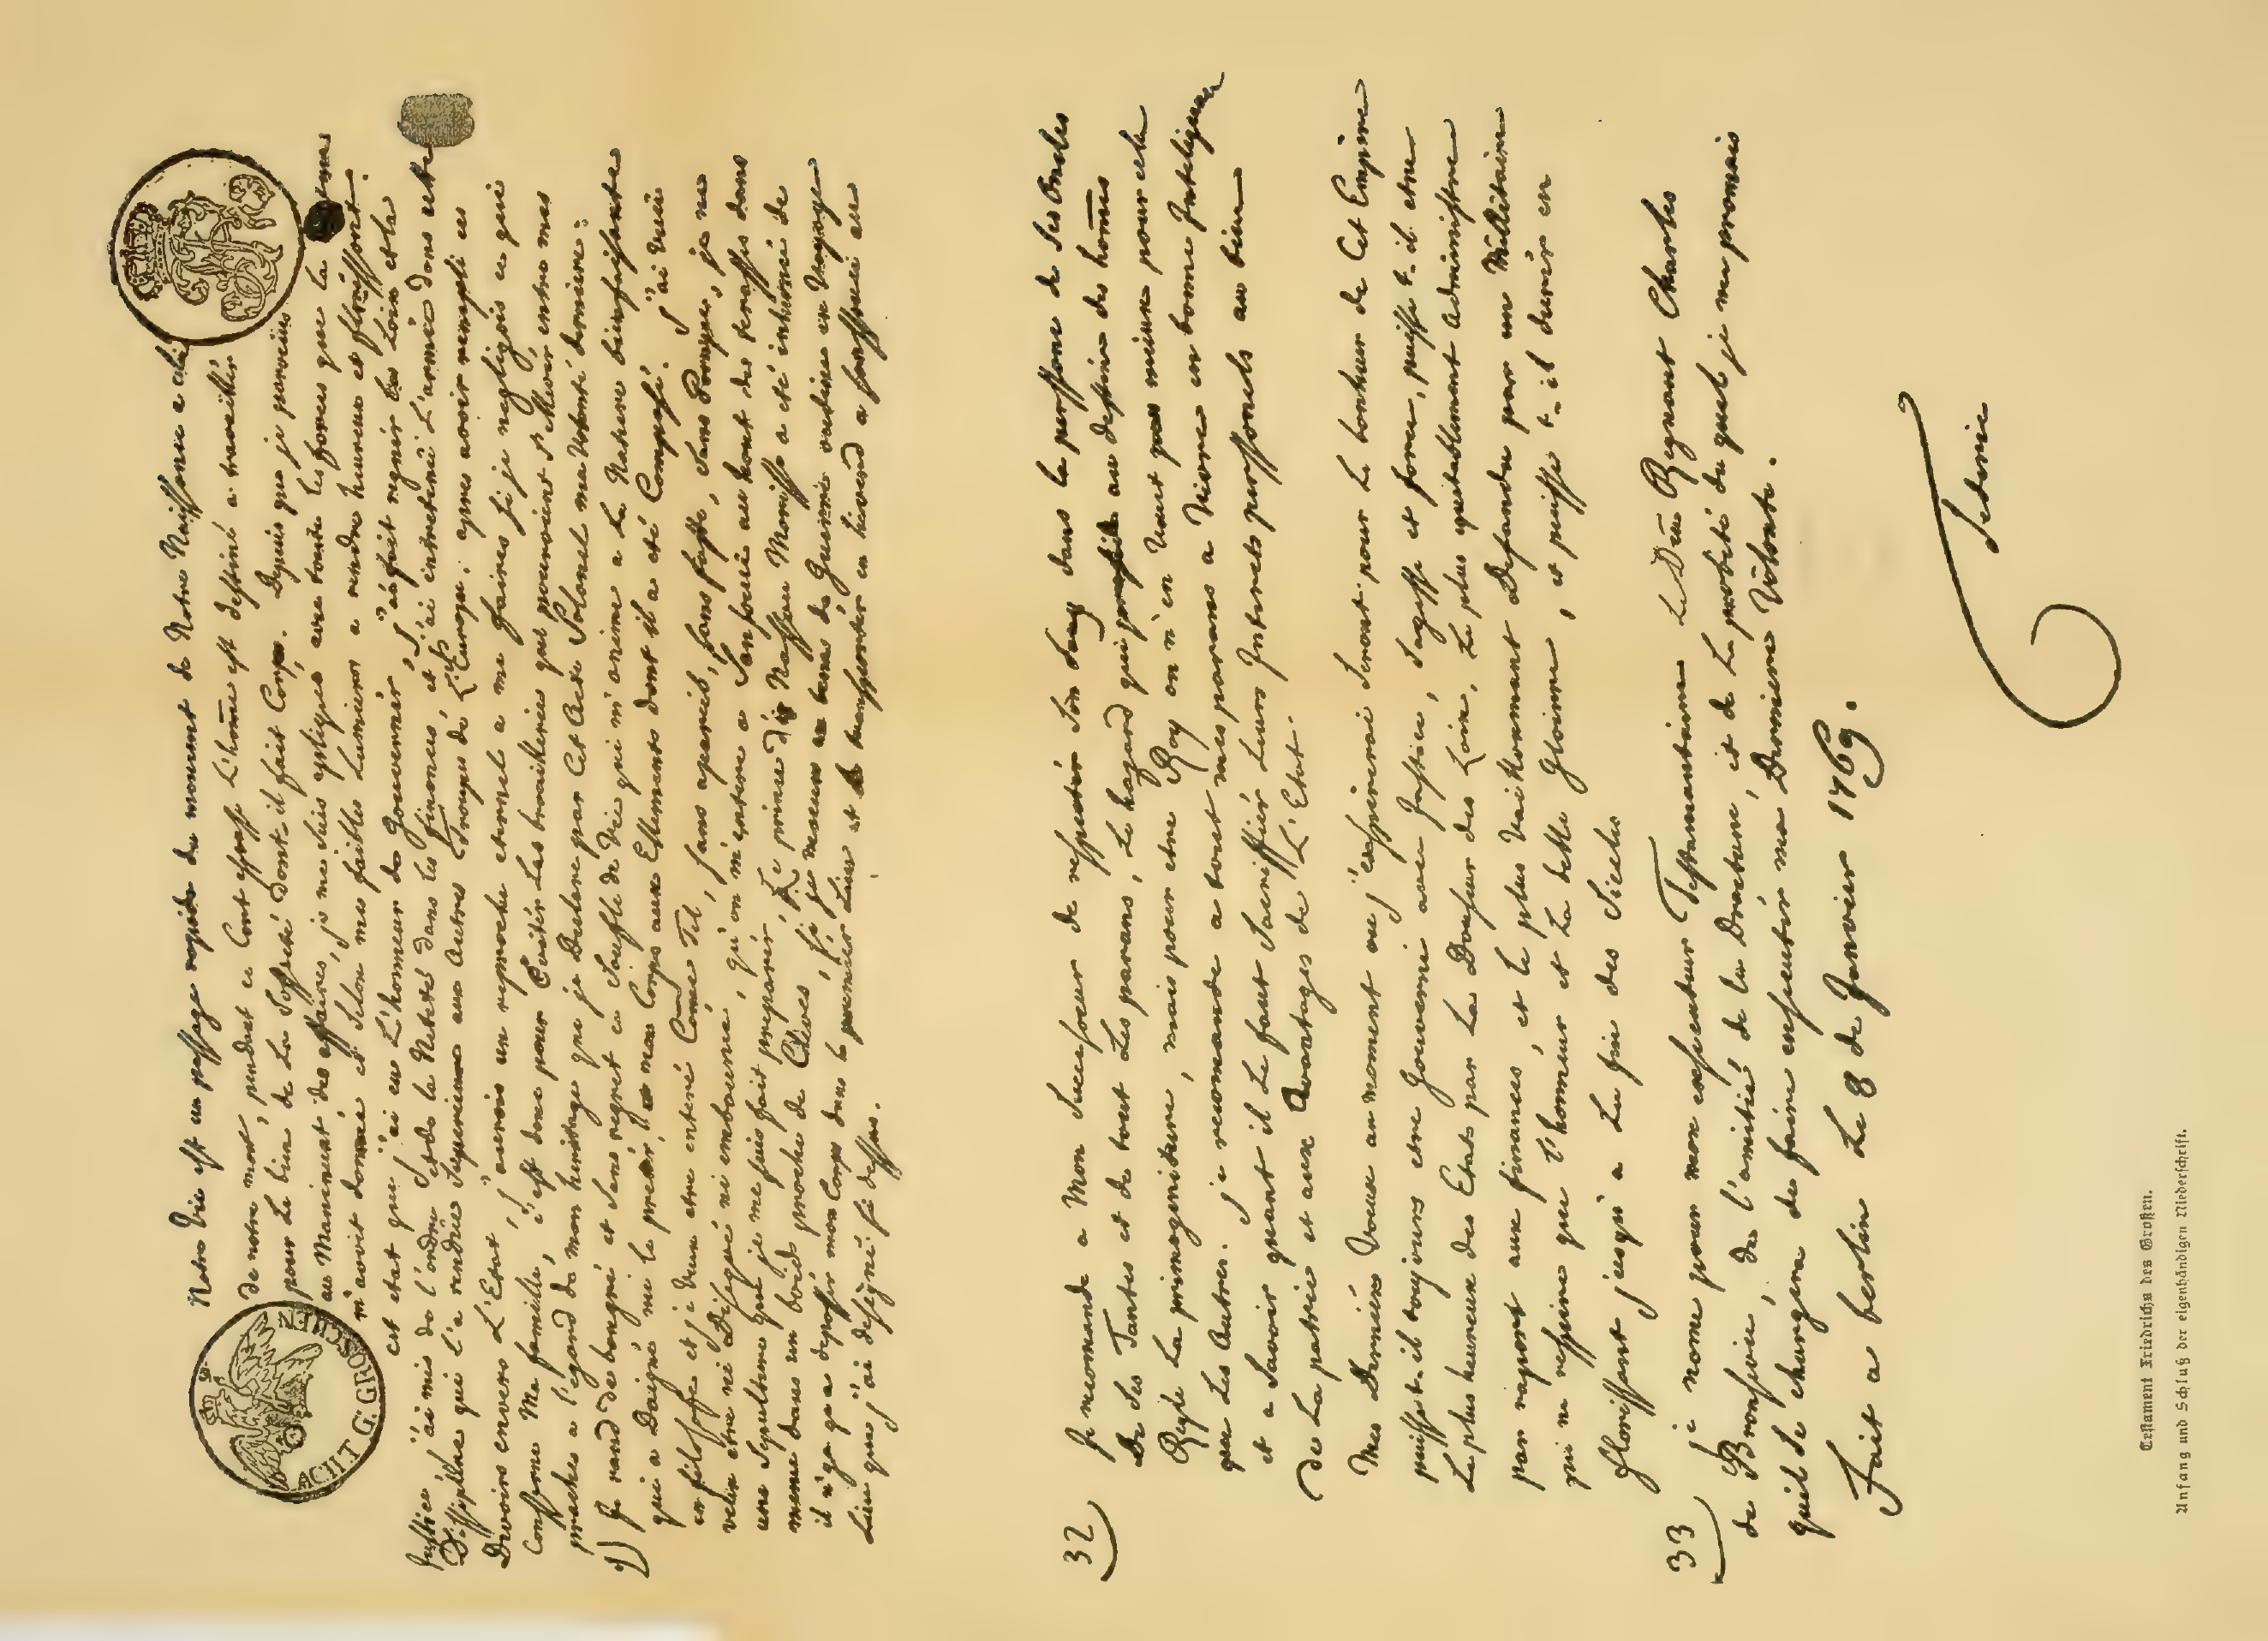 Notre Vie est un passage rapide du moment de Notre Naissance a celui
de notre mort, pendant ce Court espasse L'home est destiné a travaillér
pour Le bien de La Sosseté Dont il fait Corps. Depuis que je parvins
au Maniment des affaires, je me suis apliqué avec toute les forces que la
m'avoit donnée et selon mes faibles Lumieres a rendre heureux et florissant
cet etat que j'ai eu L'honneur de Gouvernér, J'ai fait regnér les Loix et la
justice, j'ai mis de l'ordre et de la Neteté dans les finances et j'ai entretenü L'armée dans cette
Dissipline qui l'a rendüe Superieure aux Autres Troupes de L'Europe: apres avoir rempli ces
Devoirs envers L'Etat, j'aurois un reproche eternel a me faires si je negligois ce qui
Conserne Ma famille, c'est donc pour Evitér Les brouilleries qui pouroient s'elever entre mes
proches a l'egard de mon heritage que je Declare par Cet Acte Solonel ma Volonté derniere:
1) Je rend de bongré et sans regret ce Soufle de Vie qui m'anime a La Nature bienfaisante
qui a Daigné me le pretér, et mon Corps aux Ellements dont il a eté Composé. J'ai vecü
en filosofe et je veux etre enteré Come Tel, sans apareil, sans faste, sans Pompe, je ne
veux etre ni Disequé ni embaumé, qu'on m'entere a Sansouci au haut des terasses dans
une Sepulture que je me suis fait preparér, Le prince de Nassau Morisse a eté inhumé de
meme dans un bois proche de Cleves, si je meurs en tems de Guerre ou bien en Voyage
il n'y a qu'a deposér mon Corps dans le premier Lieu et le transporter en hiverd a sansouci au
Lieu que j'ai designé si dessus.
32) Je recomande a Mon Successeur de respectér Son Sang dans la persone de Ses Oncles
De Ses Tantes et de tout Les parans, Le hazard qui preside au destin des homes
Regle La primogeniture, mais pour etre Roy on n'en Vaut pas mieux pour cela
que Les Autres. je recomande a tout mes parans a Vivre en bonne Inteligence
et a Savoir quant il Le faut Sacriffiér Leurs Interets personels au bien
de La patrie et aux Avantages de L'Etat.
Mes Derniérs Voeux au moment ou j'expirerai Seront pour Le bonheur de Cet Empire
puisse-t-il toujours etre Gouverné avec Justice, Sagesse et force, puisse t-il etre
Le plus heureux des Etats par La Douseur des Loix, Le plus equitablement Administré
par raport aux finances, et le plus Vaillamment Defandu par un Militaire
qui ne respire que l'honneur et La belle Gloire, et puisse t-il durér en
florissant jusqu'a La fin des Siecles
33) je nome pour mon exsecuteur Testamentaire Le Duc Regnant Charles
de Bronsvic, de l'amitié, de la Droiture, et de La probité du quel je me promais
quil se chargera de faire exsecutér ma Derniere Volonté.
Fait a berlin Le 8 de Janvier 1769.
Federic
Testament Friedrichs des Großen.
Anfang und Schluß der eigenhändigen Niederschrift.